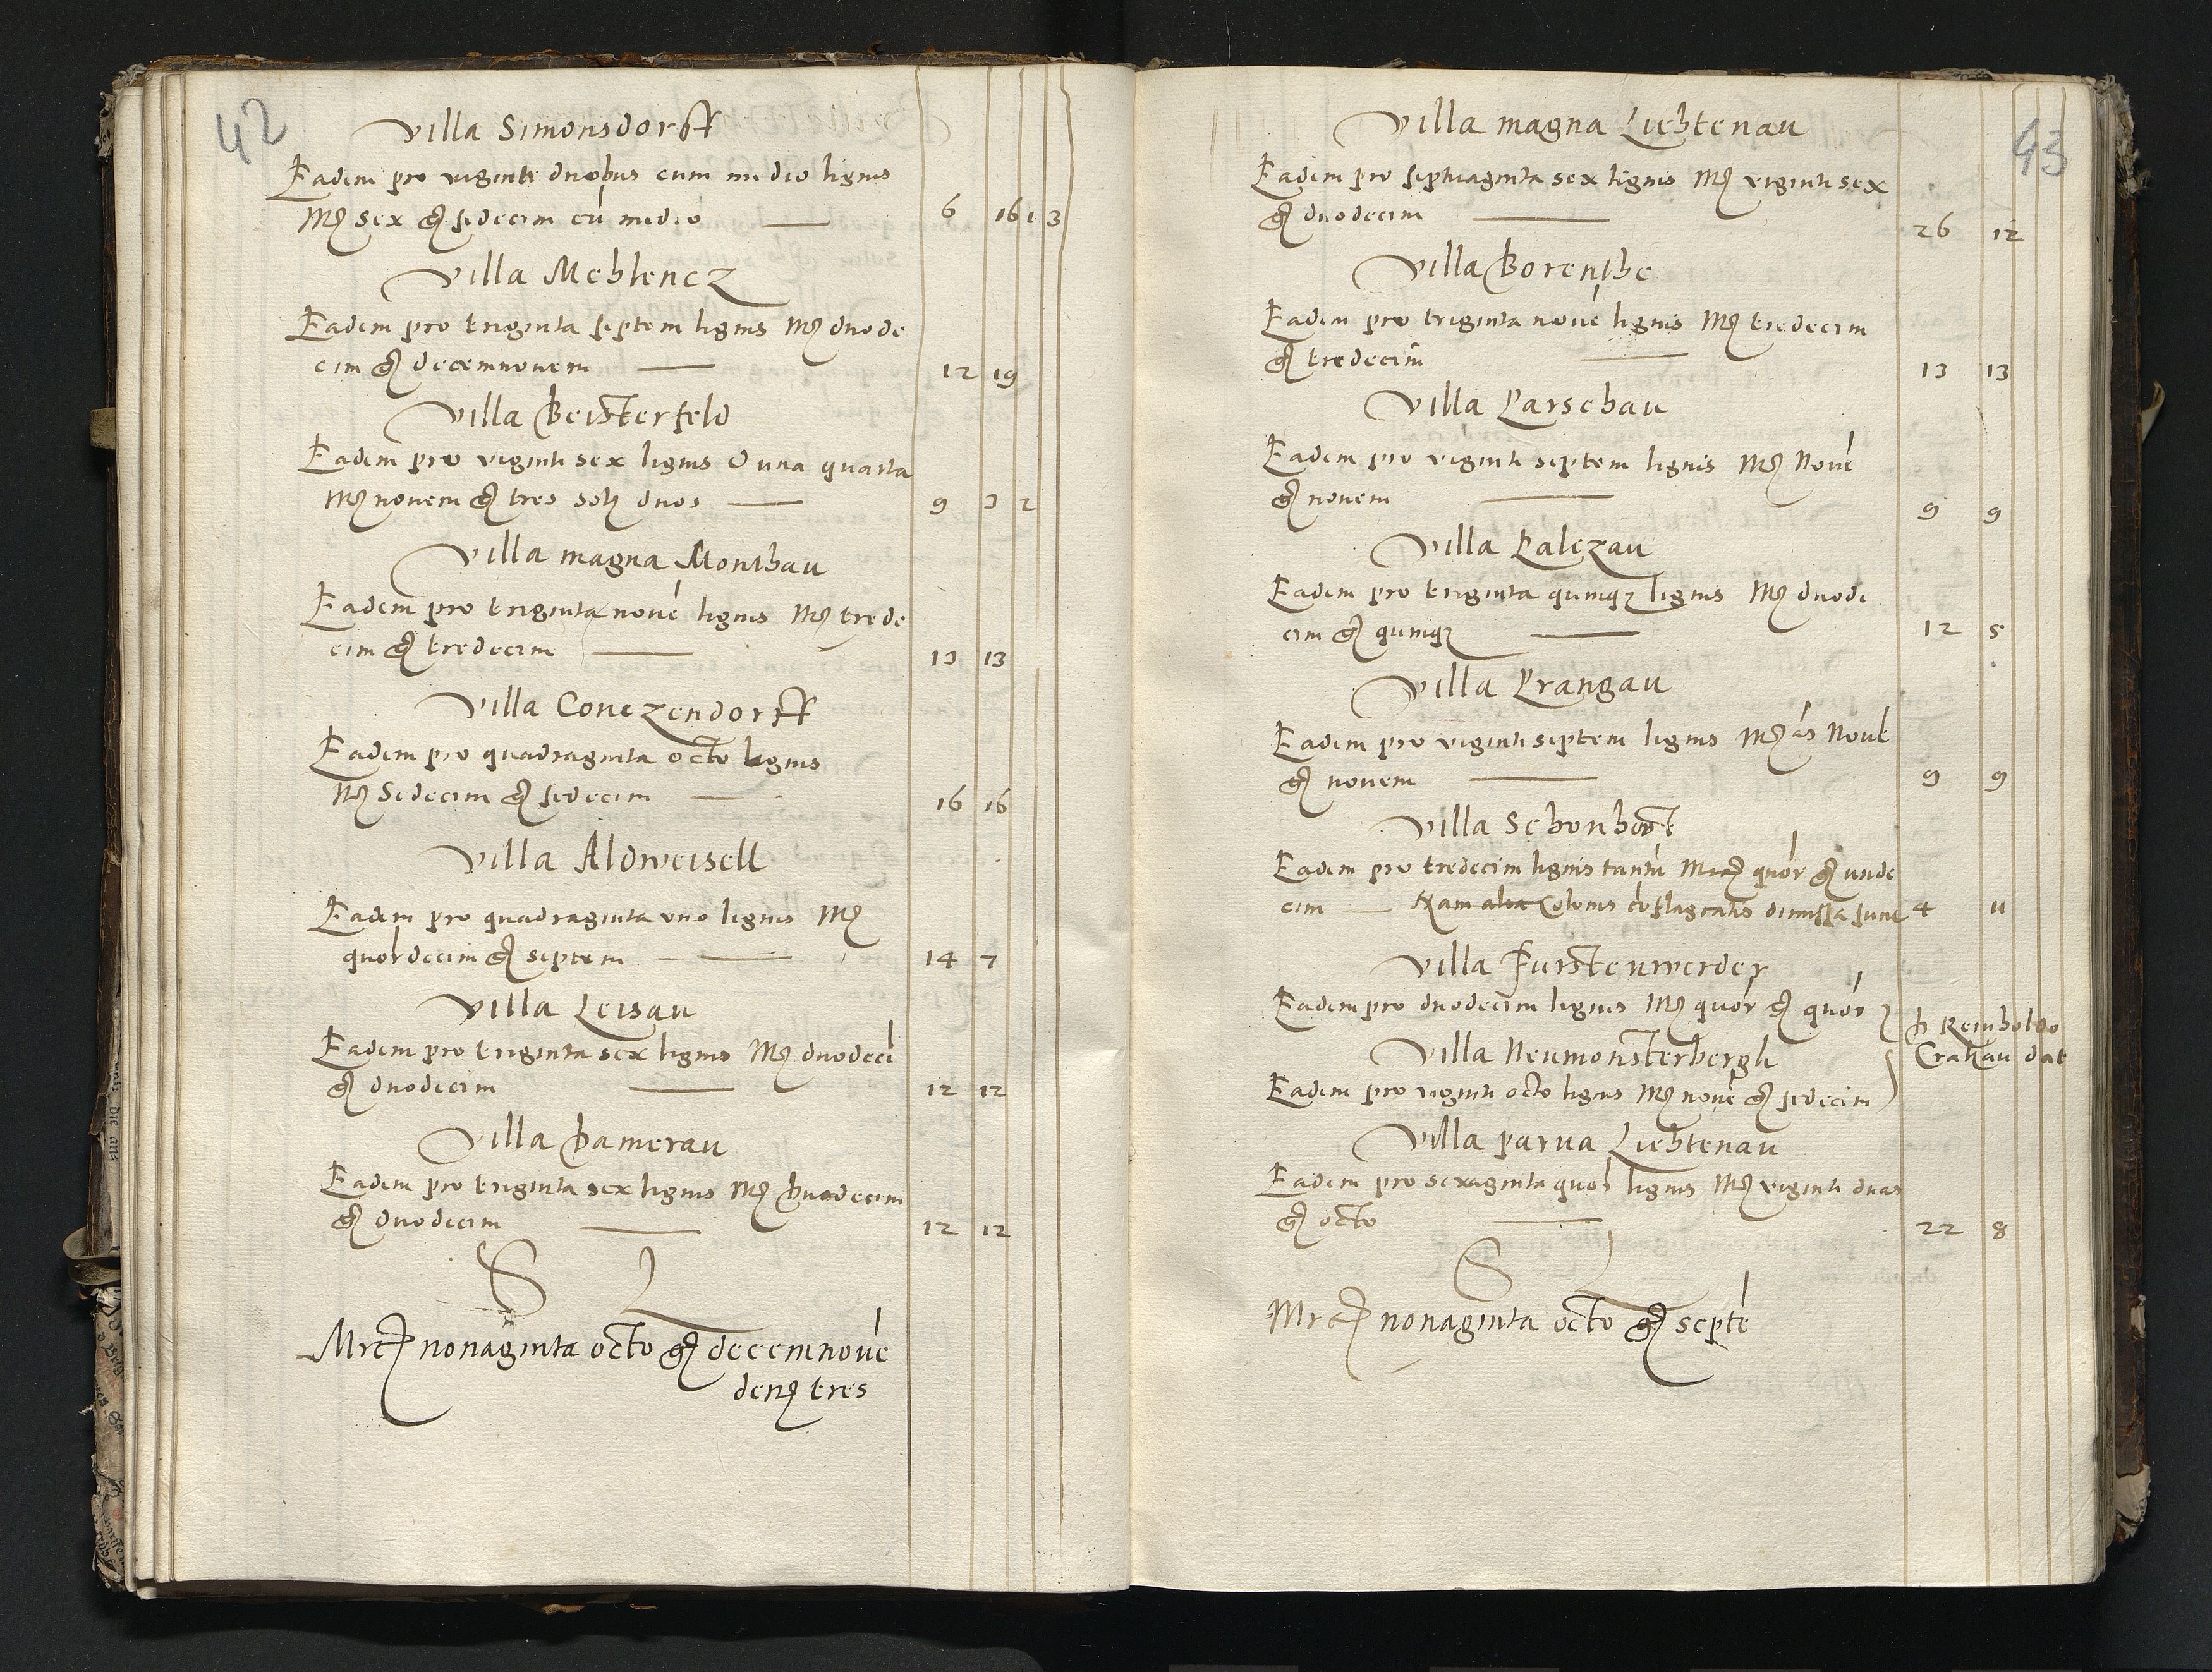 42
Villa Simonsdorff
Eadem pro viginti duobus cum medio lignis
Mr sex gr sedecim cū medio 6 16 1 3
Villa Mehlencz
Eadem pro triginta septem lignis Mr duode
cim gr decemnovem 12 19
Villa Beisterfeld
Eadem pro viginti sex lignis & una quarta
Mr novem gr tres sol duos 9 3 2
Villa magna Monthau
Eadem pro triginta novē lignis Mr trede
cim gr tredecim 13 13
Villa Conczendorff
Eadem pro quadraginta octo lignis
Mr Sedecim gr sedecim 16 16
Villa Aldweisell
Eadem pro quadraginta uno lignis Mr
quordecim gr septem 14 7
Villa Leisau
Eadem pro triginta sex lignis Mr duodeci
gr duodecim 12 12
Villa Damerau
Eadem pro triginta sex lignis Mr Duodecim
gr duodecim 12 12
S
Mrc nonaginta octo gr decemnovē
den tres
43
Villa magna Lichtenau
Eadem pro septuaginta sex lignis Mr viginti sex
gr duodecim 26 12
Villa Borenthe
Eadem pro triginta novē lignis Mr tredecim
gr tredecim 13 13
Villa Parschau
Eadem pro viginti septem lignis Mr Novē
gr novem 9 9
Villa Palczau
Eadem pro triginta quinqz lignis Mr duode
cim gr quinqz 12 5
Villa Prangau
Eadem pro viginti septem lignis Mr as Novē
gr novem 9 9
Villa Schonhorst
Eadem pro tredecim lignis tantū Mrc quor gr unde
cim Nam alia Colonis cōflagratis dimissa sunt 4 11
Villa Furstenwerder
Eadem pro duodecim lignis Mr quor gr quor
D Reinholdo
Villa Neumonsterbergh
Crakau dat
Eadem pro viginti octo lignis Mr novē gr sedecim
Villa parva Lichtenau
Eadem pro sexaginta quor lignis Mr viginti duas
gr octo 22 8
S
Mrc nonaginta octo gr septē